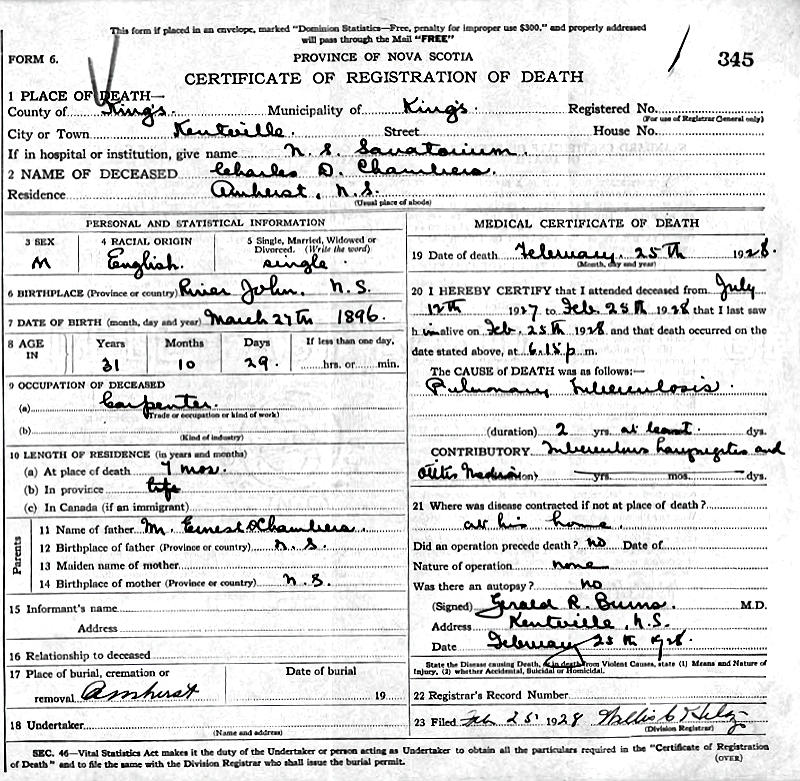 This form if placed in an envelope, marked "Dominion Statistics—Free, penalty for improper use $300." and properly addressed
will pass through the Mail "FREE"
FORM 6.
PROVINCE OF NOVA SCOTIA
345
CERTIFICATE OF REGISTRATION OF DEATH
1 PLACE OF DEATH—
County of King's. Municipality of King's Registered No.
(For use of Registrar General only)
City or Town Kentville. Street House No.
If in hospital or institution, give name N. S. Sanatorium.
2 NAME OF DECEASED Charles D. Chambers.
Residence Amherst, N.S.
(Usual place of abode)
PERSONAL AND STATISTICAL INFORMATION
3 SEX 4 RACIAL ORIGIN 5 Single, Married, Widowed or
Divorced. (Write the word)
M English. single.
6 BIRTHPLACE (Province or country) River John, N.S.
7 DATE OF BIRTH (month, day and year) March 27th 1896.
8 AGE Years Months Days If less than one day,
IN 31 10 29. hrs. or min.
9 OCCUPATION OF DECEASED
(a) Carpenter.
(Trade or occupation or kind of work)
(b)
(Kind of industry)
10 LENGTH OF RESIDENCE (in years and months)
(a) At place of death 7 mos.
(b) In province life
(c) In Canada (if an immigrant)
Parents
11 Name of father M. Ernest Chambers.
12 Birthplace of father (Province or country) N.S.
13 Maiden name of mother
14 Birthplace of mother (Province or country) N.S.
15 Informant's name
Address
16 Relationship to deceased
17 Place of burial, cremation or Date of burial
removal Amherst 19
18 Undertaker
(Name and address)
MEDICAL CERTIFICATE OF DEATH
19 Date of death February. 25th 1928.
(Month, day and year)
20 I HEREBY CERTIFY that I attended deceased from July
12th 1927 to Feb. 25th 1928 that I last saw
h im alive on Feb. 25th 1928 and that death occurred on the
date stated above, at 6.15 p. m.
The CAUSE of DEATH was as follows:—
Pulmonary Tuberculosis.
(duration) 2 yrs. at least. dys.
CONTRIBUTORY. Tuberculous Laryngitis and
Otitis Media yrs. mos. dys.
21 Where was disease contracted if not at place of death?
at his home.
Did an operation precede death? no Date of
Nature of operation none
Was there an autopsy? no
(Signed) Gerald R. Burns. M.D.
Address Kentville, N.S.
Date February 25th 1928.
State the Disease causing Death, or in death from Violent Causes, state (1) Means and Nature of
Injury, (2) whether Accidental, Suicidal or Homicidal.
22 Registrar's Record Number
23 Filed Feb 25. 1928
(Division Registrar)
SEC. 46—Vital Statistics Act makes it the duty of the Undertaker or person acting as Undertaker to obtain all the particulars required in the "Certificate of Registration
of Death" and to file the same with the Division Registrar who shall issue the burial permit. (OVER)